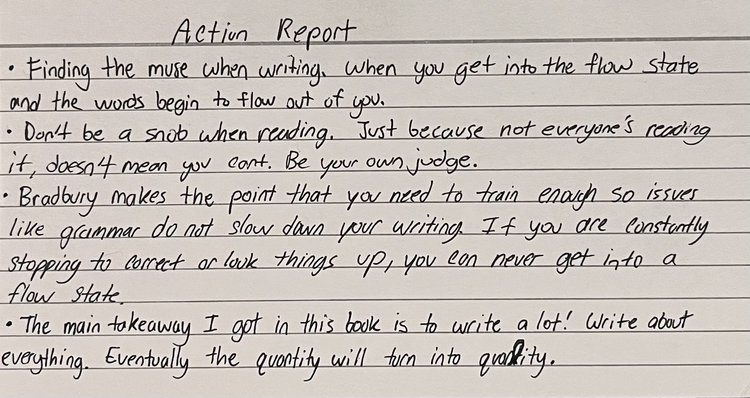 Action Report
• Finding the muse when writing. When you get into the flow state
and the words begin to flow out of you.
• Don't be a snob when reading. Just because not everyone's reading
it, doesn't mean you cant. Be your own judge.
• Bradbury makes the point that you need to train enough so issues
like grammar do not slow down your writing. If you are constantly
stopping to correct or look things up, you can never get into a
flow state.
• The main takeaway I got in this book is to write a lot! Write about
everything. Eventually the quantity will turn into quality.